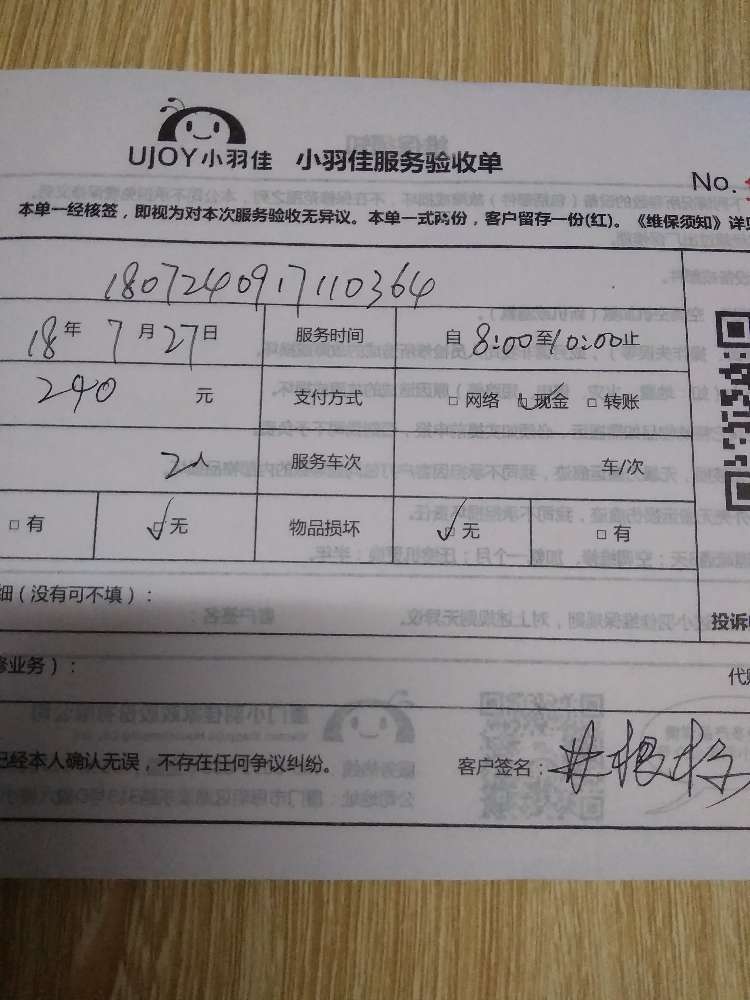 UJOY小羽佳 小羽佳服务验收单
No.
本单一经核签，即视为对本次服务验收无异议。本单一式两份，客户留存一份(红)。《维保须知》详见
1807240917110364
18年 7月27日 服务时间 自 8:00至10:00止
240 元 支付方式 □ 网络 ☑ 现金 □ 转账
2人 服务车次 车/次
□ 有 ☑ 无 物品损坏 ☑ 无 □ 有
细（没有可不填）：
投诉
修业务）：
代
已经本人确认无误，不存在任何争议纠纷。 客户签名：